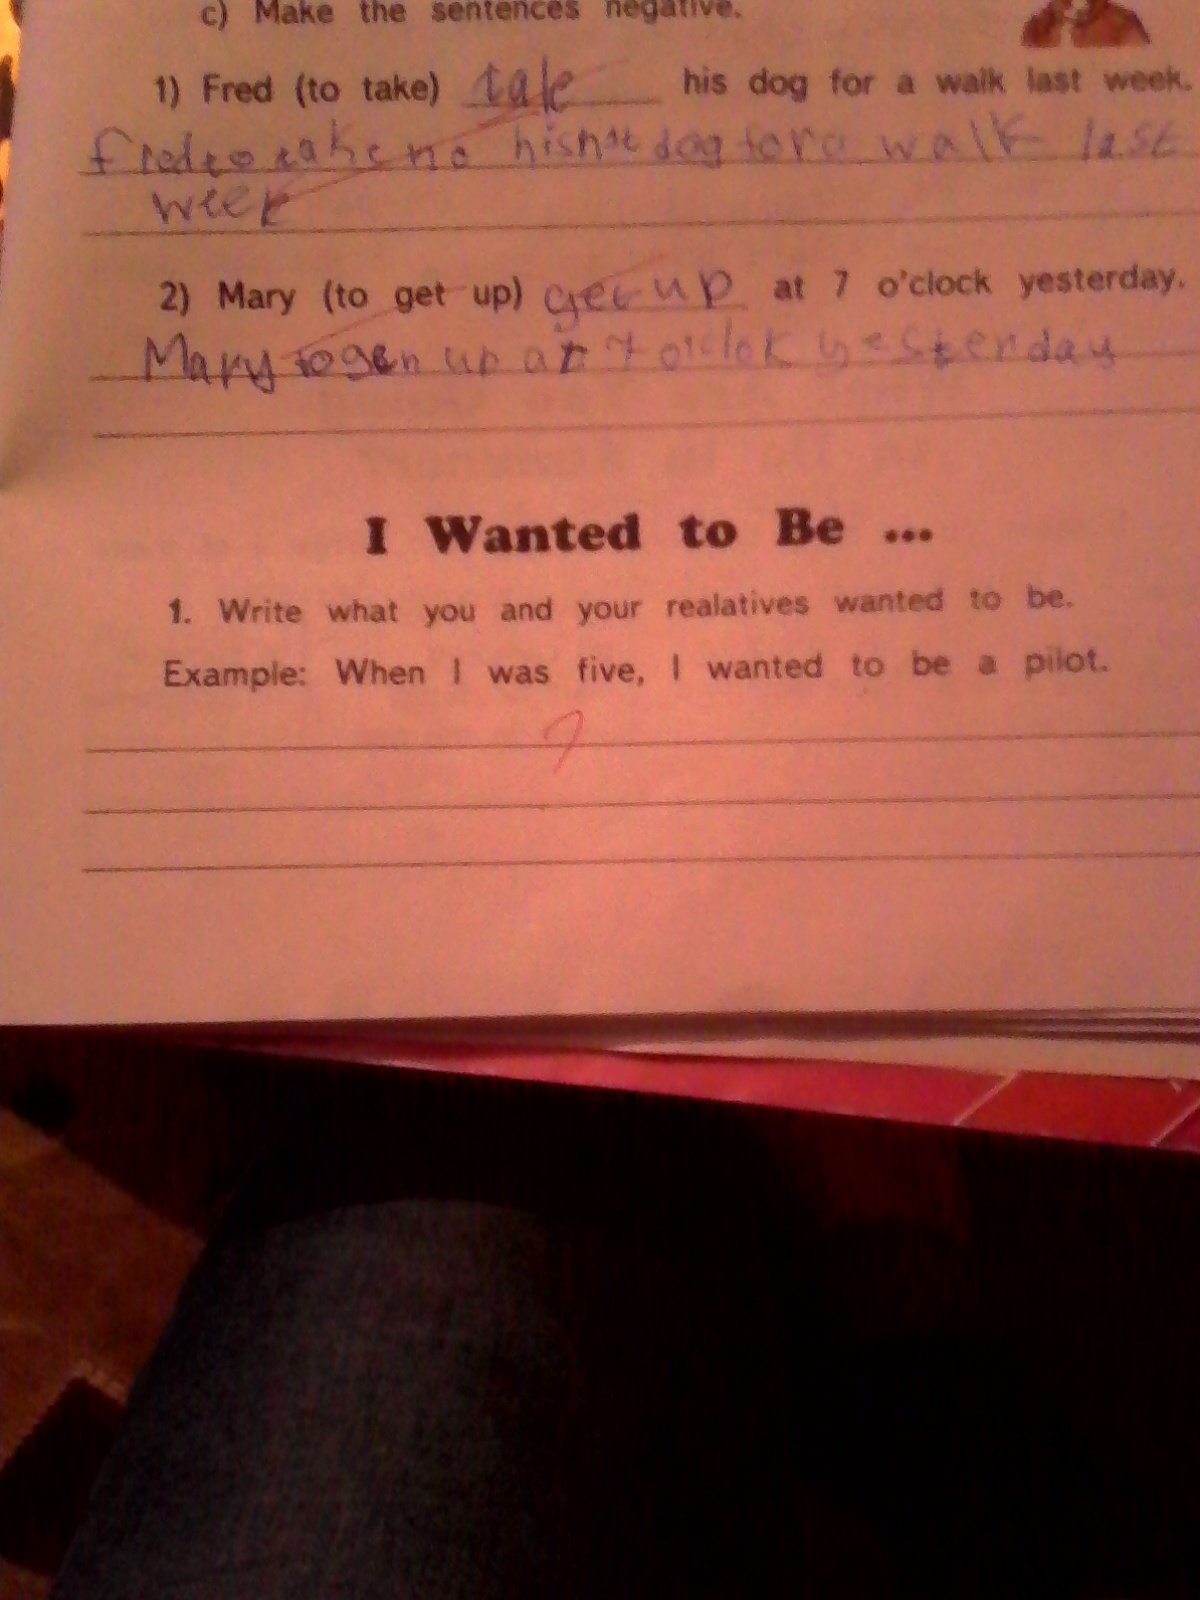 c) Make the sentences negative.
1) Fred (to take) take his dog for a walk last week.
fred to take no his not dog for a walk last
week
2) Mary (to get up) get up at 7 o'clock yesterday.
Mary to gen up at 7 o'clok yesterday
I Wanted to Be ...
1. Write what you and your realatives wanted to be.
Example: When I was five, I wanted to be a pilot.
?